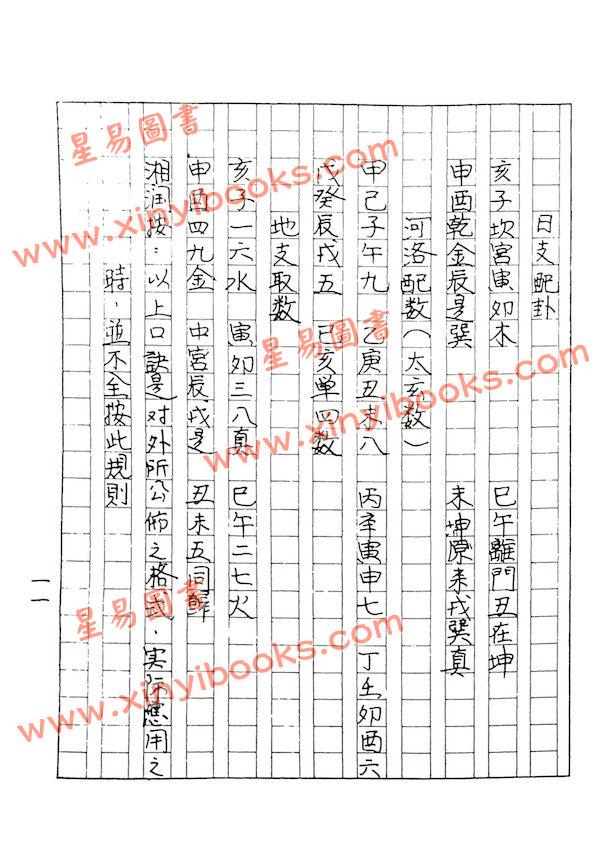 日支配卦
亥子坎宮寅卯木 巳午離門丑在坤
申酉乾金辰是巽 未坤原来戌巽真
河洛配数(太玄数)
甲己子午九 乙庚丑未八 丙辛寅申七 丁壬卯酉六
戊癸辰戌五 巳亥单四数
地支取数
亥子一六水 寅卯三八真 巳午二七火
申酉四九金 中宮辰戌是 丑未五同歸
湘润按:以上口訣是对外所公佈之格式,实际應用之
時,並不全按此規則
一一
星易图書
www.xinyibooks.com
星易图書
www.xinyibooks.com
星易图書
www.xinyibooks.com